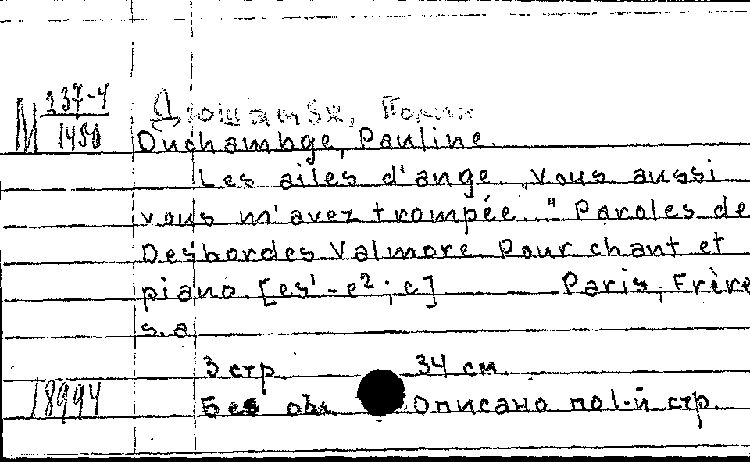 М 237-4
1450
Дюшамбж, Полин
Duchambge, Pauline.
Les ailes d'ange „Vous aussi
vous m'avez trompée..." Paroles de
Desbordes Valmore. Pour chant et
piano. [es¹-e²; c] Paris, Frère
s.a.
3 стр. 34 см.
18994
Без обл. Описано по 1-й стр.